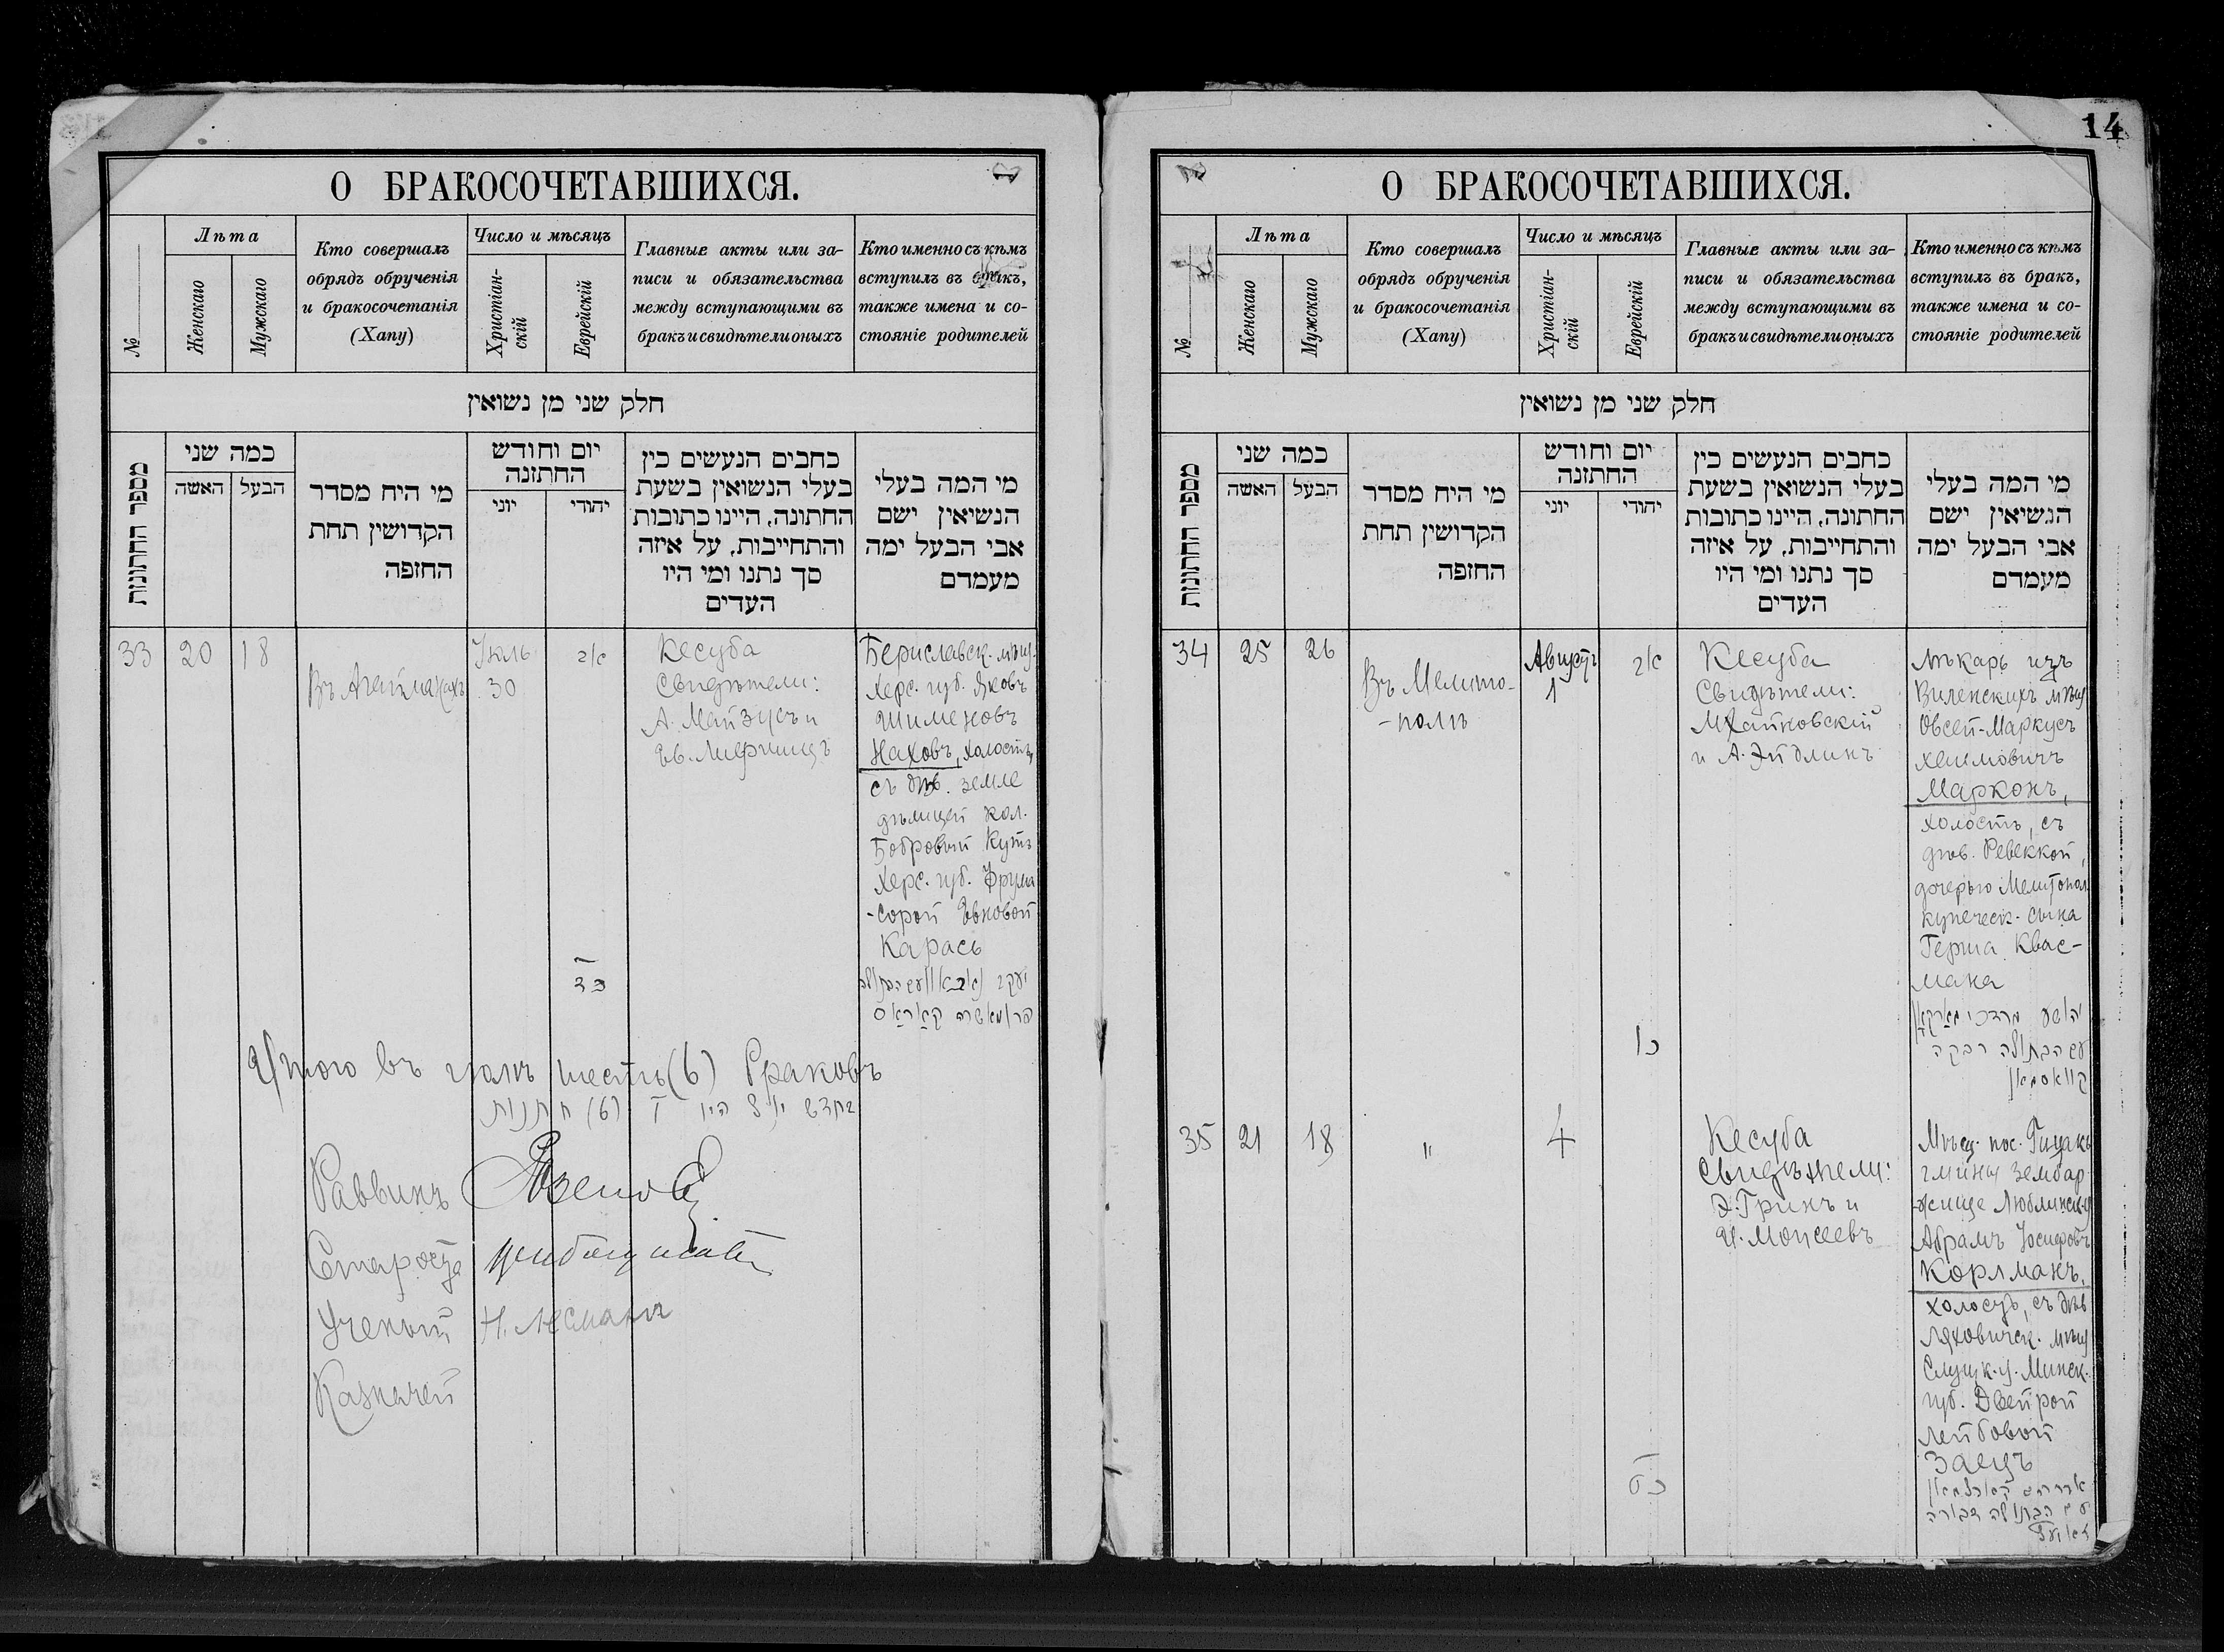 О БРАКОСОЧЕТАВШИХСЯ.
№
Лѣта
Женскаго
Мужскаго
Кто совершалъ
обрядъ обрученія
и бракосочетанія
(Хапу)
Число и мѣсяцъ
Христіан-
скій
Еврейскій
Главные акты или за-
писи и обязательства
между вступающими въ
бракъ и свидѣтели оныхъ
Кто именно съ кѣмъ
вступилъ въ бракъ,
также имена и со-
стояніе родителей
חלק שני מן נשואין
מספר החתונות
כמה שני
האשה
הבעל
מי היח מסדר
הקדושין תחת
החזפה
יום וחודש
החתזנה
יוני
יהודי
כחבים הנעשים כין
בעלי הנשואין בשעת
החתונה, היינו כתובות
והתחייבות, על איזה
סך נתנו ומי היו
העדים
מי המה בעלי
הנשיאין ישם
אבי הבעל ימה
מעמדם
33
20
18
Въ
30
Кесуба
Свидѣтели:
А. Майзусъ и
Бериславск. мѣщ.
Херс. губ. Яковъ
Шименовъ
Наховъ, холостъ,
съ дѣв. земле
дѣлицей кол.
Бобровый Кутъ
Херс. губ. Фрума
-Сорой
Карась
כד
Итого въ шесть (6) Браковъ
(6) חתנות
Раввинъ
Староста
Ученый Н. Лесманъ
Казначей
14
О БРАКОСОЧЕТАВШИХСЯ.
№
Лѣта
Женскаго
Мужскаго
Кто совершалъ
обрядъ обрученія
и бракосочетанія
(Хапу)
Число и мѣсяцъ
Христіан-
скій
Еврейскій
Главные акты или за-
писи и обязательства
между вступающими въ
бракъ и свидѣтели оныхъ
Кто именно съ кѣмъ
вступилъ въ бракъ,
также имена и со-
стояніе родителей
חלק שני מן נשואין
מספר החתונות
כמה שני
האשה
הבעל
מי היח מסדר
הקדושין תחת
החזפה
יום וחודש
החתזנה
יוני
יהודי
כחבים הנעשים כין
בעלי הנשואין בשעת
החתונה, היינו כתובות
והתחייבות, על איזה
סך נתנו ומי היו
העדים
מי המה בעלי
הנשיאין ישם
אבי הבעל ימה
מעמדם
34
25
26
Въ Мелито-
-полѣ
Августъ
1
Кесуба
Свидѣтели:
М. Хайновскій
и А. Эйдлинъ
Лѣкарь изъ
Виленскихъ мѣщ
Овсей-Маркусъ
Хаимовичъ
Марконъ,
холостъ, съ
дѣв. Ревеккой,
дочерью Мелитопол.
купеческ. сына
Герша Квас-
мана
יהושע מרדכי מארקאן
עם הבתולה רבקה
קוואסמאן
כו
35
21
18
"
4
Кесуба
Свидѣтели:
Э. Гринъ и
И. Моисеевъ
Мѣщ. пос.
гмины
Люблинск. у
Абрамъ Іосифовъ
Корлманъ,
холостъ, съ дѣв
Ляховичск. мѣщ
Слуцк. у. Минск.
губ. Двейрой
Лейбовой
Заецъ
כט
אברהם קארלמאן
עם הבתולה דבורה